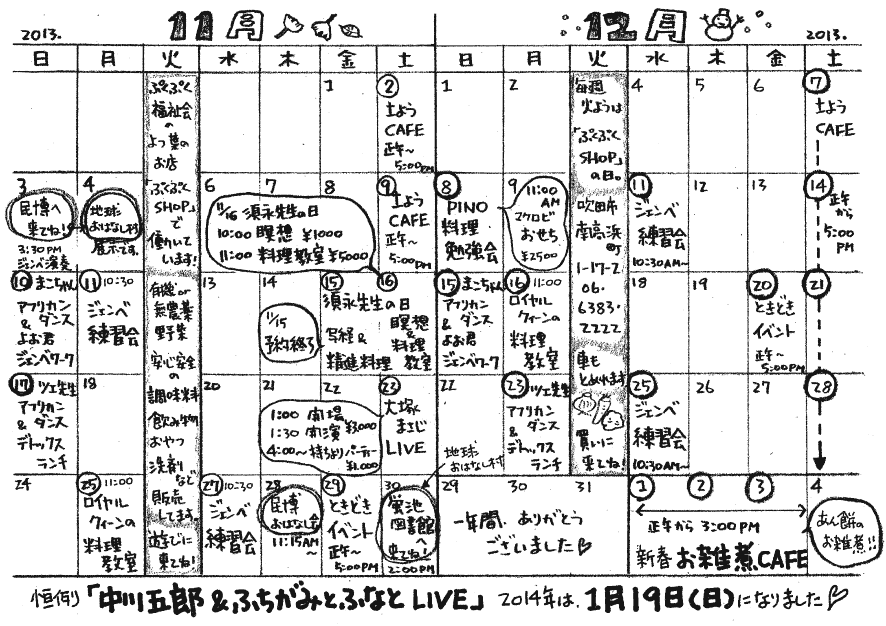 2013.
11月
12月
2013.
日 月 火 水 木 金 土 日 月 火 水 木 金 土
ぷくぷく
福祉会
の
よつ葉の
お店
「ぷくぷく
SHOP」
で
働いて
います!
有機or
無農薬
野菜
安心安全
の
調味料
飲み物
おやつ
洗剤
など
販売
してます。
遊びに
来てね!
1
2
土よう
CAFE
正午~
5:00PM
3
民博へ
来てね!
3:30PM
ジャンベ演奏
4
地球
おはなし村
展示です。
6
7
8
11/16 須永先生の日
10:00 瞑想 ¥1000
11:00 料理教室 ¥5000
9
土よう
CAFE
正午~
5:00PM
10 まこちゃん
アフリカン
& ダンス
よお君
ジャンベワーク
11 10:30
ジャンベ
練習会
13
14
11/15
予約終了
15
16
須永先生の日
写経&
精進料理
瞑想
&
料理
教室
17 ツェ先生
アフリカン
& ダンス
デトックス
ランチ
18
20
21
22
1:00 開場
1:30 開演 ¥3000
4:00~持ちよりパーティー
¥1000
23
大塚
まさじ
LIVE
24
25 11:00
ロイヤル
クィーンの
料理
教室
27 10:30
ジャンベ
練習会
28
民博
おはなし会
11:15AM
~
29
ときどき
イベント
正午~
5:00PM
30
蛍池
図書館
へ
来てね!
2:00PM
地球
おはなし村
1
2
毎週
火ようは
「ぷくぷく
SHOP」
の日。
吹田市
南高浜
町
1-17-2
06.
6383.
2222
車も
とめれます
買いに
来てね!
4
5
6
7
土よう
CAFE
8
PINO
料理
勉強会
9
11:00
AM
マクロビ
おせち
¥2500
11
ジャンベ
練習会
10:30AM~
12
13
14
正午
から
5:00
PM
15 まこちゃん
アフリカン
& ダンス
よお君
ジャンベワーク
16 11:00
ロイヤル
クィーンの
料理
教室
18
19
20
ときどき
イベント
正午~
5:00PM
21
22
23 ツェ先生
アフリカン
& ダンス
デトックス
ランチ
25
ジャンベ
練習会
10:30AM~
26
27
28
29
30
31
一年間、ありがとう
ございました♡
1
2
3
正午から 3:00PM
新春 お雑煮CAFE
4
あん餅の
お雑煮!!
恒例「中川五郎&ふちがみとふなとLIVE」2014年は、1月19日(日)になりました♡